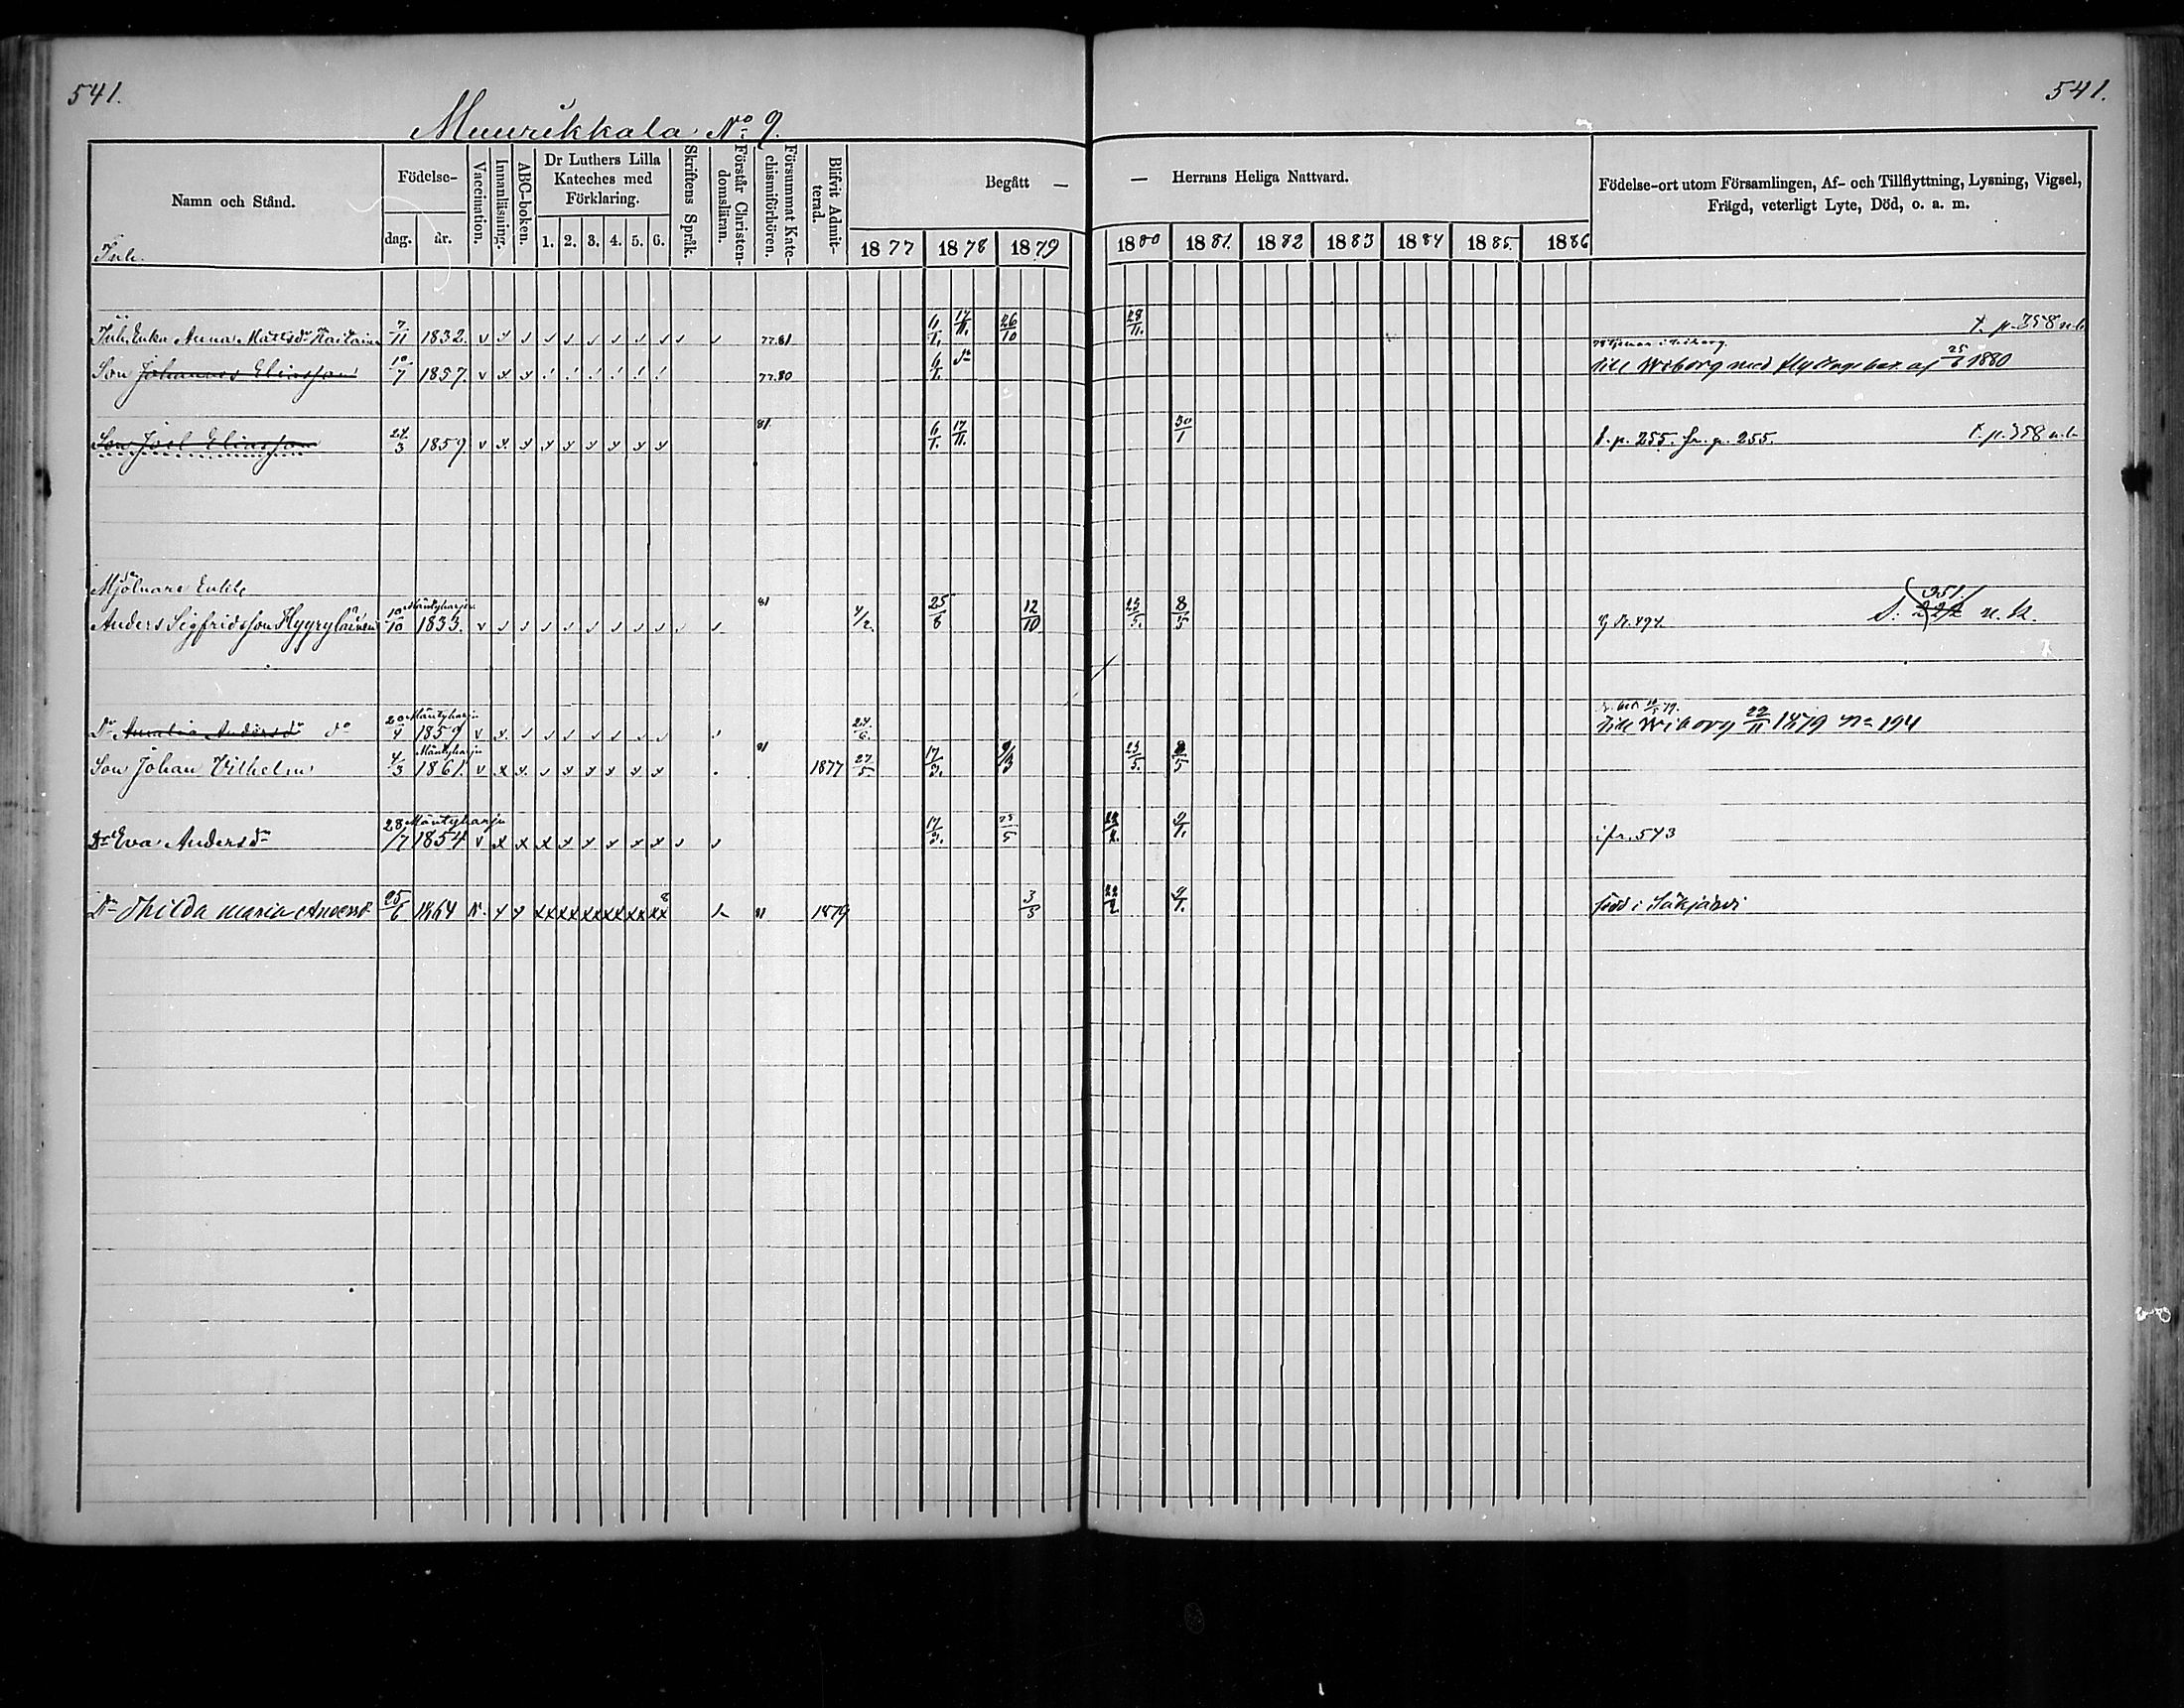 541.
541.
Muurikkala No 9.
Namn och Stånd.
Födelse-
dag. år.
Vaccination.
Innanläsning.
ABC-boken.
Dr Luthers Lilla Kateches med Förklaring.
1. 2. 3. 4. 5. 6.
Skriftens Språk.
Förstår Christendomsläran.
Försummat Katechismiförhören.
Blifvit Admitterad.
Begått —
— Herrans Heliga Nattvard.
1877 1878 1879 1880 1881. 1882 1883 1884 1885. 1886
Födelse-ort utom Församlingen, Af- och Tillflyttning, Lysning, Vigsel, Frägd, veterligt Lyte, Död, o. a. m.
Inh.
Inh. Enka Anna Mattsdr 7/11 1832. 77.81 26/10 28/11. t. p. 358 n.b.
Son Johannes Eliasson 10/7 1857. 77.80 6/1. do till Wiborg med flyttningsbet. af 25/6 1880
Son Joel Eliasson 24/3 1859. 81 6/1. 17/11. 30/1 t. p. 255. fr. p. 255. t. p. 358 n.b.
Mjölnare Enkl.
Anders Sigfridsson 10/10 Mäntyharju 1833. 81 4/2. 25/6 12/10 23/5. 8/5 351.
Dr Amalia Andersdr do 20/4 Mäntyharju 1859 24/6. till Wiborg 22/11 1879 No 194
Son Johan Vilhelm 4/3 Mäntyharju 1861. 81 1877 27/5 17/3. 23/5. 8/5
Dr Eva Andersdr 28/7 Mäntyharju 1854 17/3. 25/5 22/2. 9/1. jfr. 543
Dr Thilda Maria Andersd 25/6 1864 8 81 1879 3/3 22/2. 9/1. född i Säkjärvi